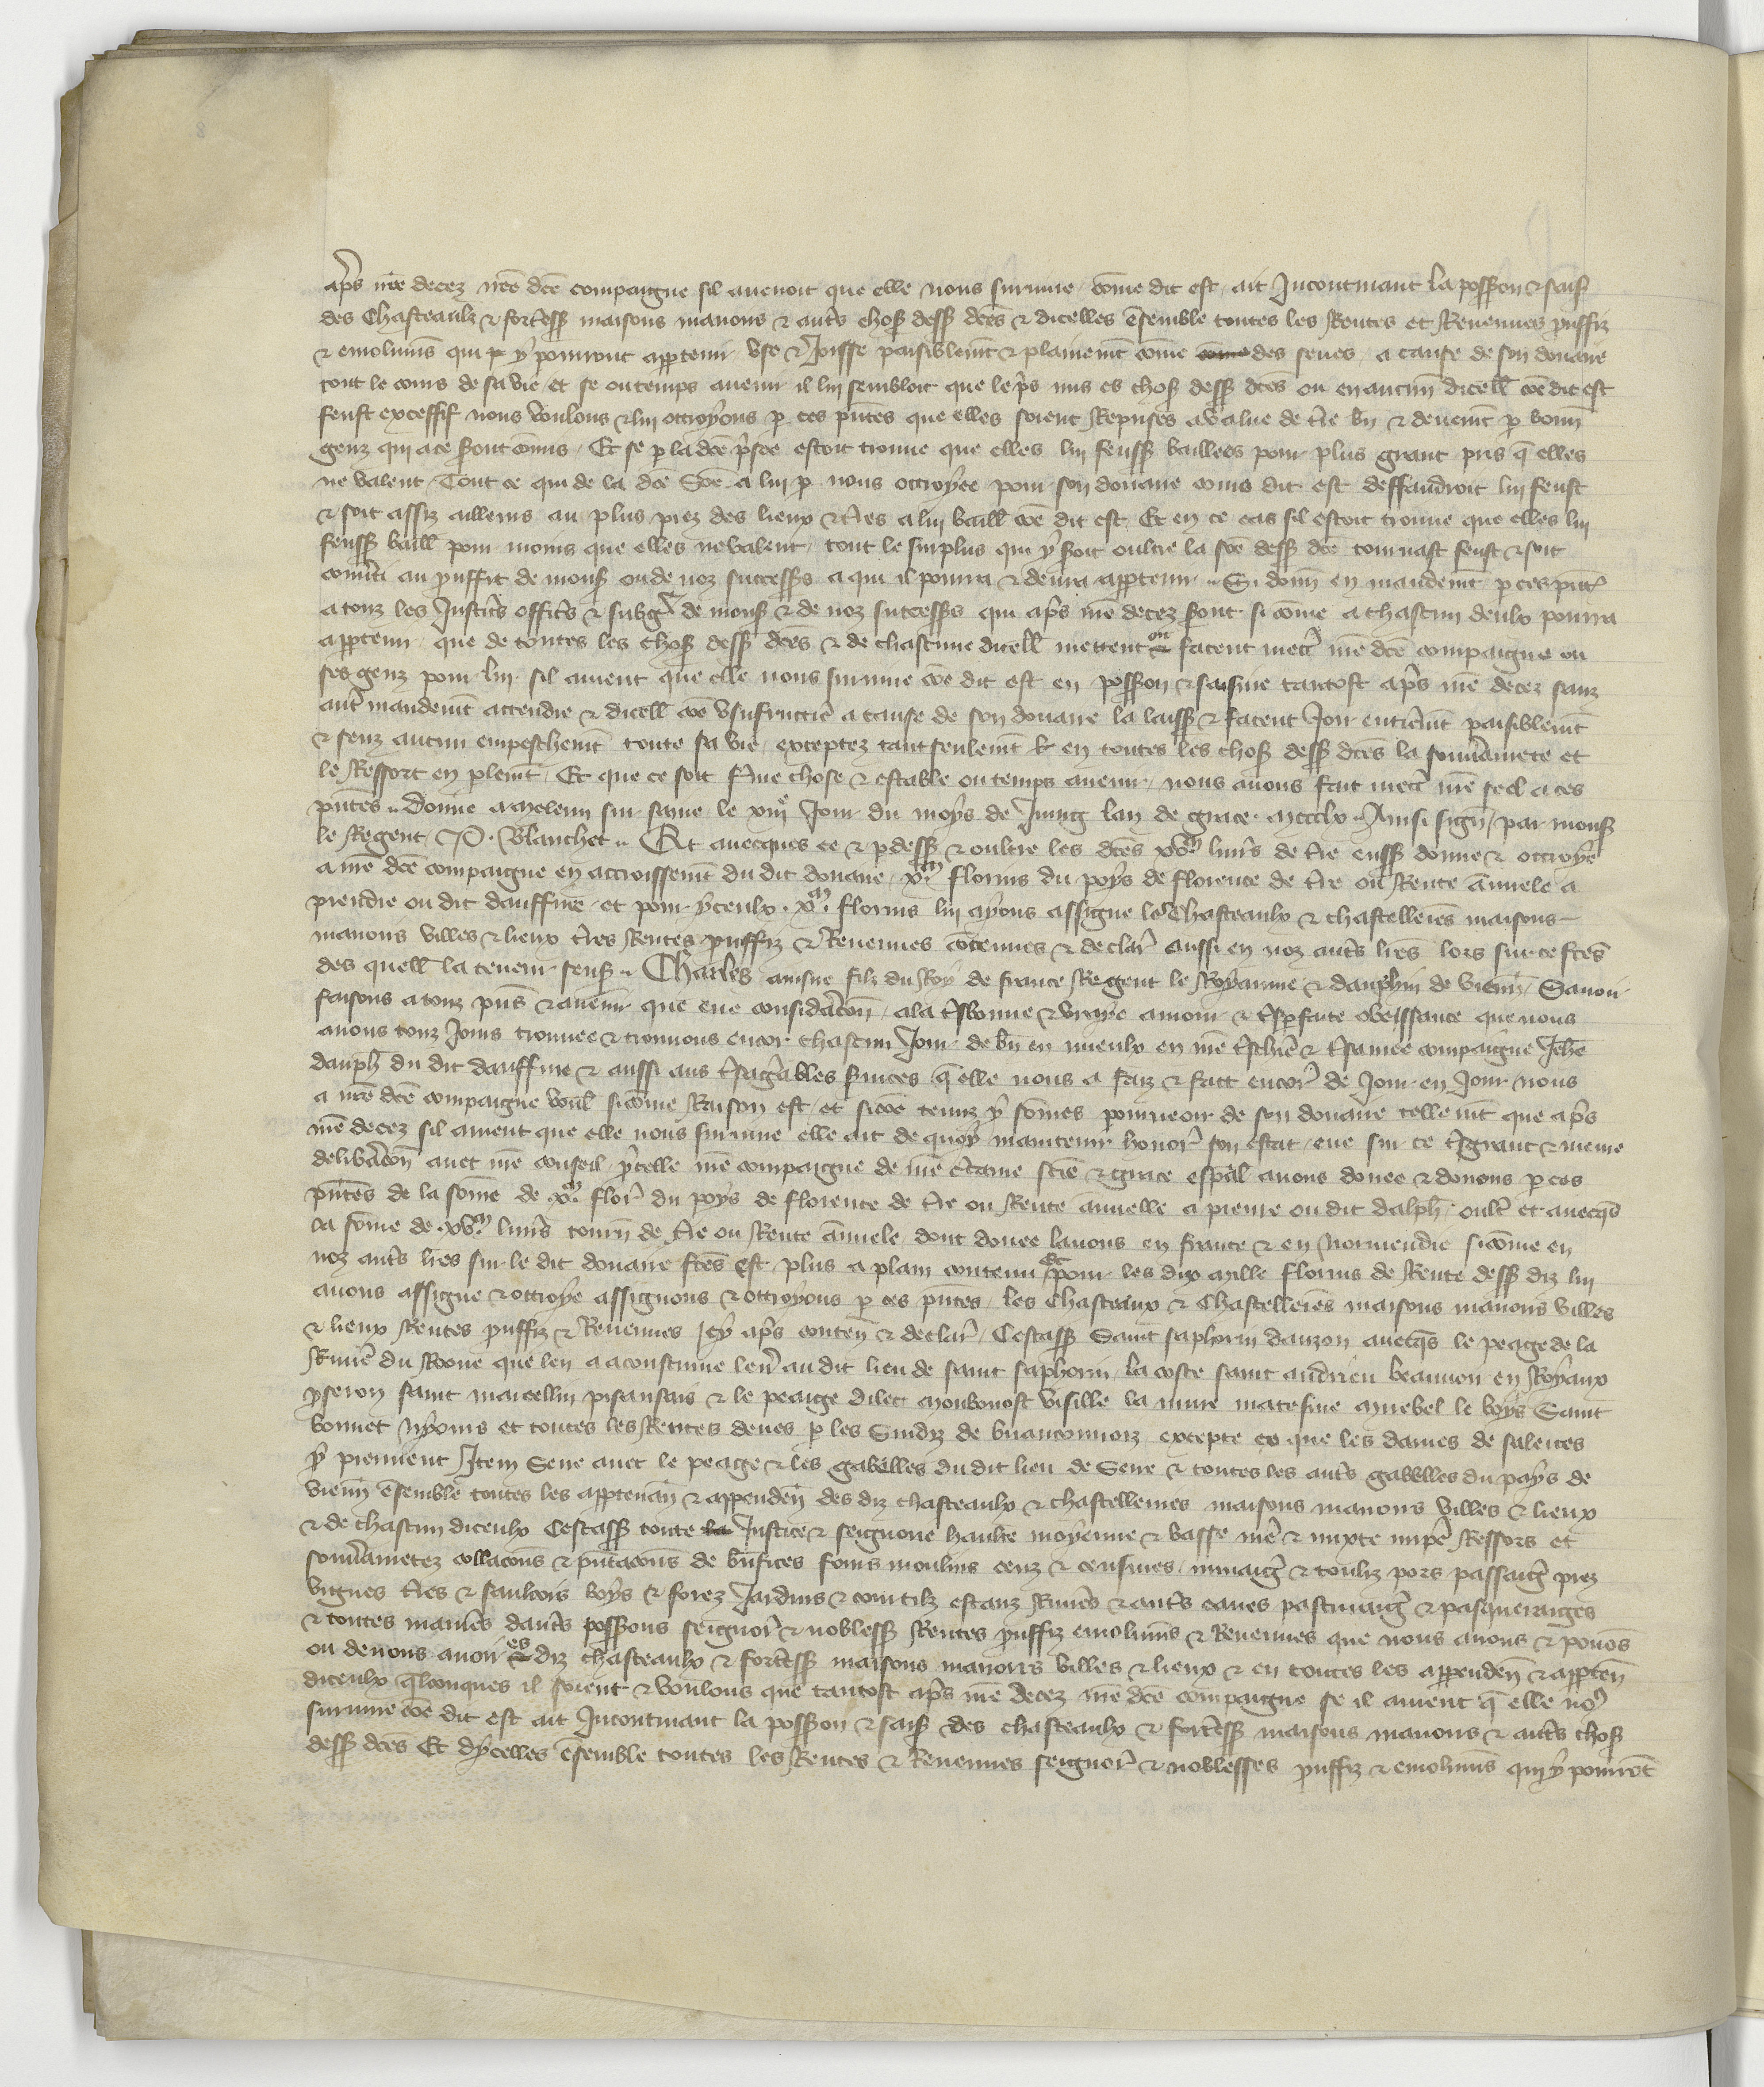 ap̃s nr̃e decez nr̃e dc̃e compaigne sil auenoit que elle nous suruiue cõme dit est ait Incontinant la poss̃ion & sais̃
des Chasteaulx & fortess̃ maisons manoirs & autr̃s chos̃ dess̃ dc̃es & dicelles ẽsemble toutes les Rentes et Reuenues prouffiz
& emolumẽs qui y pourront app̃tenir vse & Joisse paisiblemẽt & plainemẽt cõme des seues a cause de son douaire
tout le cours de sa vie et se ou temps auenir il lui sembloit que le p̃s mis es chos̃ dess̃ dc̃es ou en aucun dicell̃ cõe dit est
feust excessif nous voulons & lui ottroyons p ces p̃ntes que elles soient Reprises a value de tr̃e bñ & deuemẽt p bonñ
genz qui a ce s̃ont cõmis Et se p la dc̃e p̃sce estoit trouue que elles lui feuss̃ baillees pour plus grant pris q̃ elles
ne valent Tout ce qui de la dc̃e Sõe a lui p nous ottroyee pour son douaire cõme dit est deffaudroit lui feust
& soit assiz ailleurs au plus prez des lieux & tr̃es a lui baill̃ cõe dit est Et en ce cas sil estoit trouue que elles lui
feuss̃ baill̃ pour moins que elles ne valent tout le surplus qui y s̃oit oultre la sõe dess̃ dc̃e tournast feust & soit
conũti au prouffit de mons̃ ou de noz success̃s a qui il pourra & deura app̃tenir Si donñ en mandemẽt p ces p̃nt̃
a touz les Justic̃s offic̃s & subg̃ de mons̃ & de noz success̃s qui ap̃s nr̃e decez s̃ont si cõme a chascun deulx pourra
app̃tenir que de toutes les chos̃ dess̃ dc̃es & de chascune dicell̃ mettent ou facent mett̃ nr̃e dc̃e compaigne ou
ses genz pour lui sil auient que elle nous suruiue cõe dit est en poss̃ion & saisine tantost ap̃s nr̃e decez sanz
autr̃ mandemẽt attendre & dicell̃ cõe vsufructier̃ a cause de son douaire la laiss̃ & facent Joir entier̃mẽt paisiblemẽt
& senz aucun empeschemẽt toute sa vie exceptez tant seulemẽt en toutes les chos̃ dess̃ dc̃es la souuer̃ainete et
le Ressort en plemẽt Et que ce soit fer̃me chose & estable ou temps auenir nous auons fait mett̃ nr̃e seel a ces
p̃ntes Donne a meleun sur saine le xiiijᵉ Jour du moys de Juing lan de grace mccclx Ainsi signe par mons̃
le Regent P. Blanchet Et auecques ce & p dess̃ & oultre les dc̃es xvᵐ liur̃s de tr̃e euss̃ donne & ottroye
a nr̃e dc̃e compaigne en accroissemẽt du dit douaire xᵐ florins du poys de florence de tr̃e ou Rente ãnuele a
prendre ou dit dauffine et pour yceulx xᵐ florins lui ayons assigne les Chasteaulx & chastellenies maisons
manoirs villes & lieux tr̃es Rentes prouffiz & Reuenues cõtenues & declair̃ aussi en noz autr̃s lr̃es lors sur ce fc̃es
des quell̃ la teneur sens̃ Charles ainsne filz du Roy de france Regent le Royaume & dauphin de vienñ Sauoir
faisons a touz p̃ns & auenir que eue considr̃acõn a la tr̃sbonne & vraye amour & tr̃sp̃faite obeissance que nous
auons touz Jours trouuee & trouuons encor chascun Jour de bñ en mieulx en nr̃e tr̃schier̃ & tr̃samee compaigne Jeh̃e
dauph̃ du dit dauffine & aussi aus tr̃sagr̃ables s̃uices q̃ elle nous a faiz & fait encor̃ de Jour en Jour nous
a nr̃e dc̃e compaigne voul̃ si cõme Raison est et si cõe tenuz y sõmes pourueoir de son douaire tellemẽt que ap̃s
nr̃e decez sil auient que elle nous suruiue elle ait de quoy maintenir honor̃ son estat eue sur ce tr̃grant & meure
delibr̃acõn auec nr̃e conseil ycelle nr̃e compaigne de nr̃e c̃taine sciẽ & grace esp̃al auons donee & donons p ces
p̃ntes de la sõme de xᵐ flor̃ du poys de florence de tr̃e ou Rente ãnuelle a prenre ou dit dalph̃ oult̃ et auecq̃s
la sõme de xvᵐ liur̃s tourñ de tr̃e ou Rente ãnuele dont douee lauons en france & en Normendie si cõme en
noz autr̃s lr̃es sur le dit douaire fc̃es est plus a plain contenu et pour les dix mille florins de Rente dess̃ diz lui
auons assigne & ottroye assignons & ottroyons p ces p̃ntes les Chasteaux & Chastellenies maisons manoirs villes
& lieux Rentes prouffiz & Reuenues Jcy ap̃s conteñ & declair̃ Cestass̃ Saint saphorin dauzon auecq̃s le peage de la
Riuier̃ du Rone que len a acoustume leũ au dit lieu de saint saphorin la coste saint andrieu beauuoir en Royaux
yseron saint marcellin pisansais & le peaige dilec monbonost visille la mure matesine auriebel le boys Saint
bonnet nyoins et toutes les Rentes deues p les Sindiz de brianconnoiz excepte ce que les dames de saletes
y prennent Jtem Serue auec le peage & les gabelles du dit lieu de Serue & toutes les autr̃s gabelles du pays de
vienñ ẽsemble toutes les app̃tenañ & appendeñ des diz chasteaulx & chastellenies maisons manoirs villes & lieux
& de chascun diceulx Cestass̃ toute Justice & seignorie haulte moyenne & basse mer̃ & mixte imper̃ Ressors et
souuer̃ainetez collacõns & p̃ntacõns de bñfices fours moulins cenz & censiues minaig̃ & touliz pors passaig̃ prez
vignes tr̃es & saulcois boys & forez Jardins & courtilz estanz Riuier̃s & autr̃s eaues pasturaig̃ & pasqueraiges
& toutes manier̃s dautr̃s poss̃ions seignor̃ & nobless̃ Rentes prouffiz emolumẽs & Reuenues que nous auons & pouõs
ou deuons auoir es diz chasteaulx & fortess̃ maisons manoirs villes & lieux & en toutes les appendeñ & app̃teñ
diceulx q̃lconques il soient & voulons que tantost ap̃s nr̃e decez nr̃e dc̃e compaigne se il auient q̃ elle no⁹
suruiue cõe dit est ait Incontinant la poss̃ion & sais̃ des chasteaulx & fortess̃ maisons manoirs & autr̃s chos̃
dess̃ dc̃es Et dycelles ẽsemble toutes les Rentes & Reuenues seignor̃ & noblesses prouffiz & emolumẽs qui y pourrõt